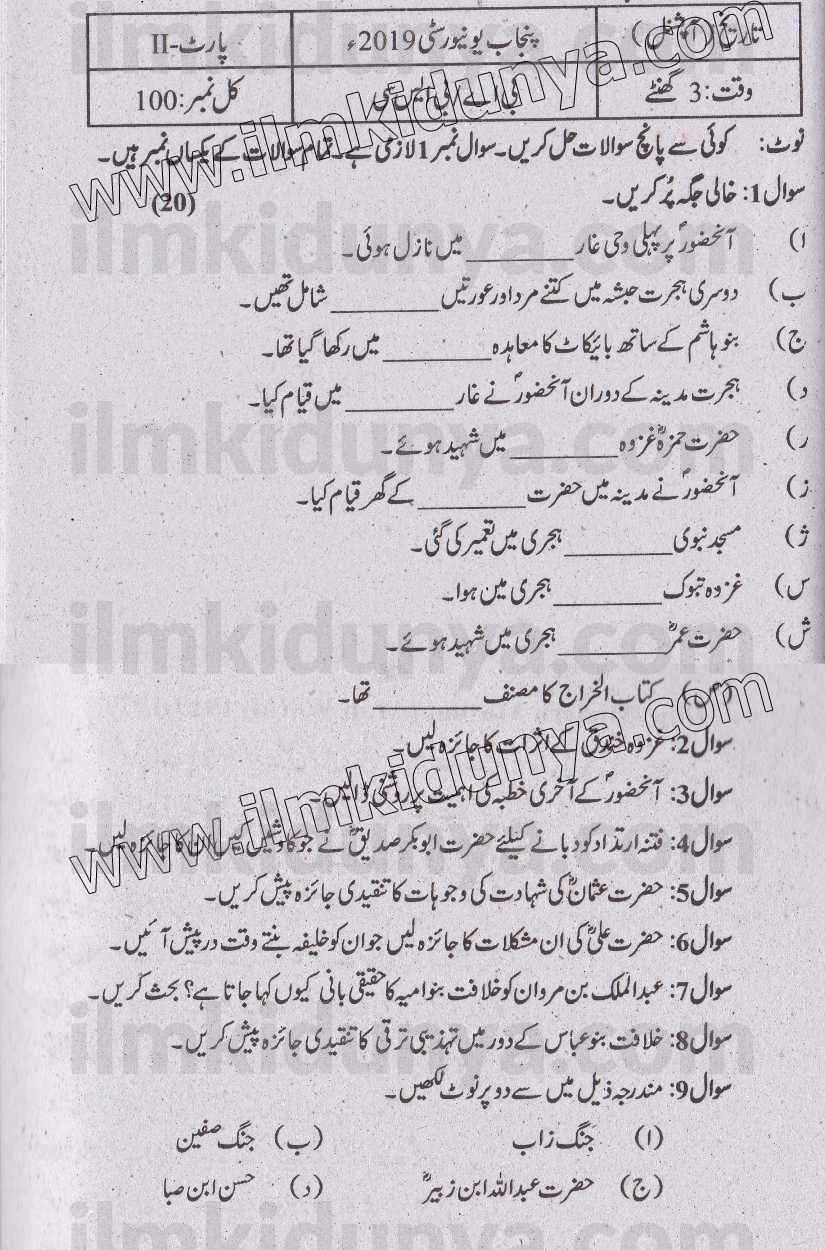 تاریخ (آپشنل) پنجاب یونیورسٹی 2019ء پارٹ-II
وقت: 3 گھنٹے بی اے / بی ایس سی کل نمبر: 100
نوٹ: کوئی سے پانچ سوالات حل کریں۔ سوال نمبر 1 لازمی ہے۔ تمام سوالات کے یکساں نمبر ہیں۔
سوال 1: خالی جگہ پُر کریں۔ (20)
ا) آنحضورؐ پر پہلی وحی غار ________ میں نازل ہوئی۔
ب) دوسری ہجرت حبشہ میں کتنے مرد اور عورتیں ________ شامل تھیں۔
ج) بنو ہاشم کے ساتھ بائیکاٹ کا معاہدہ ________ میں رکھا گیا تھا۔
د) ہجرت مدینہ کے دوران آنحضورؐ نے غار ________ میں قیام کیا۔
ر) حضرت حمزہؓ غزوہ ________ میں شہید ہوئے۔
ز) آنحضورؐ نے مدینہ میں حضرت ________ کے گھر قیام کیا۔
ژ) مسجد نبوی ________ ہجری میں تعمیر کی گئی۔
س) غزوہ تبوک ________ ہجری مین ہوا۔
ش) حضرت عمرؓ ________ ہجری میں شہید ہوئے۔
ص) کتاب الخراج کا مصنف ________ تھا۔
سوال 2: غزوہ خندق کے اثرات کا جائزہ لیں۔
سوال 3: آنحضورؐ کے آخری خطبہ کی اہمیت پر روشنی ڈالیں۔
سوال 4: فتنہ ارتداد کو دبانے کیلئے حضرت ابوبکر صدیقؓ نے جو کاوشیں کیں ان کا جائزہ لیں۔
سوال 5: حضرت عثمانؓ کی شہادت کی وجوہات کا تنقیدی جائزہ پیش کریں۔
سوال 6: حضرت علیؓ کی ان مشکلات کا جائزہ لیں جو ان کو خلیفہ بنتے وقت درپیش آئیں۔
سوال 7: عبدالملک بن مروان کو خلافت بنو امیہ کا حقیقی بانی کیوں کہا جاتا ہے؟ بحث کریں۔
سوال 8: خلافت بنو عباس کے دور میں تہذیبی ترقی کا تنقیدی جائزہ پیش کریں۔
سوال 9: مندرجہ ذیل میں سے دو پر نوٹ لکھیں۔
(ا) جنگ زاب (ب) جنگ صفین
(ج) حضرت عبداللہ ابن زبیرؓ (د) حسن ابن صبا
www.ilmkidunya.com
www.ilmkidunya.com
ilmkidunya.com
ilmkidunya.com
ilmkidunya.com
ilmkidunya.com
ilmkidunya.com
ilmkidunya.com
ilmkidunya.com